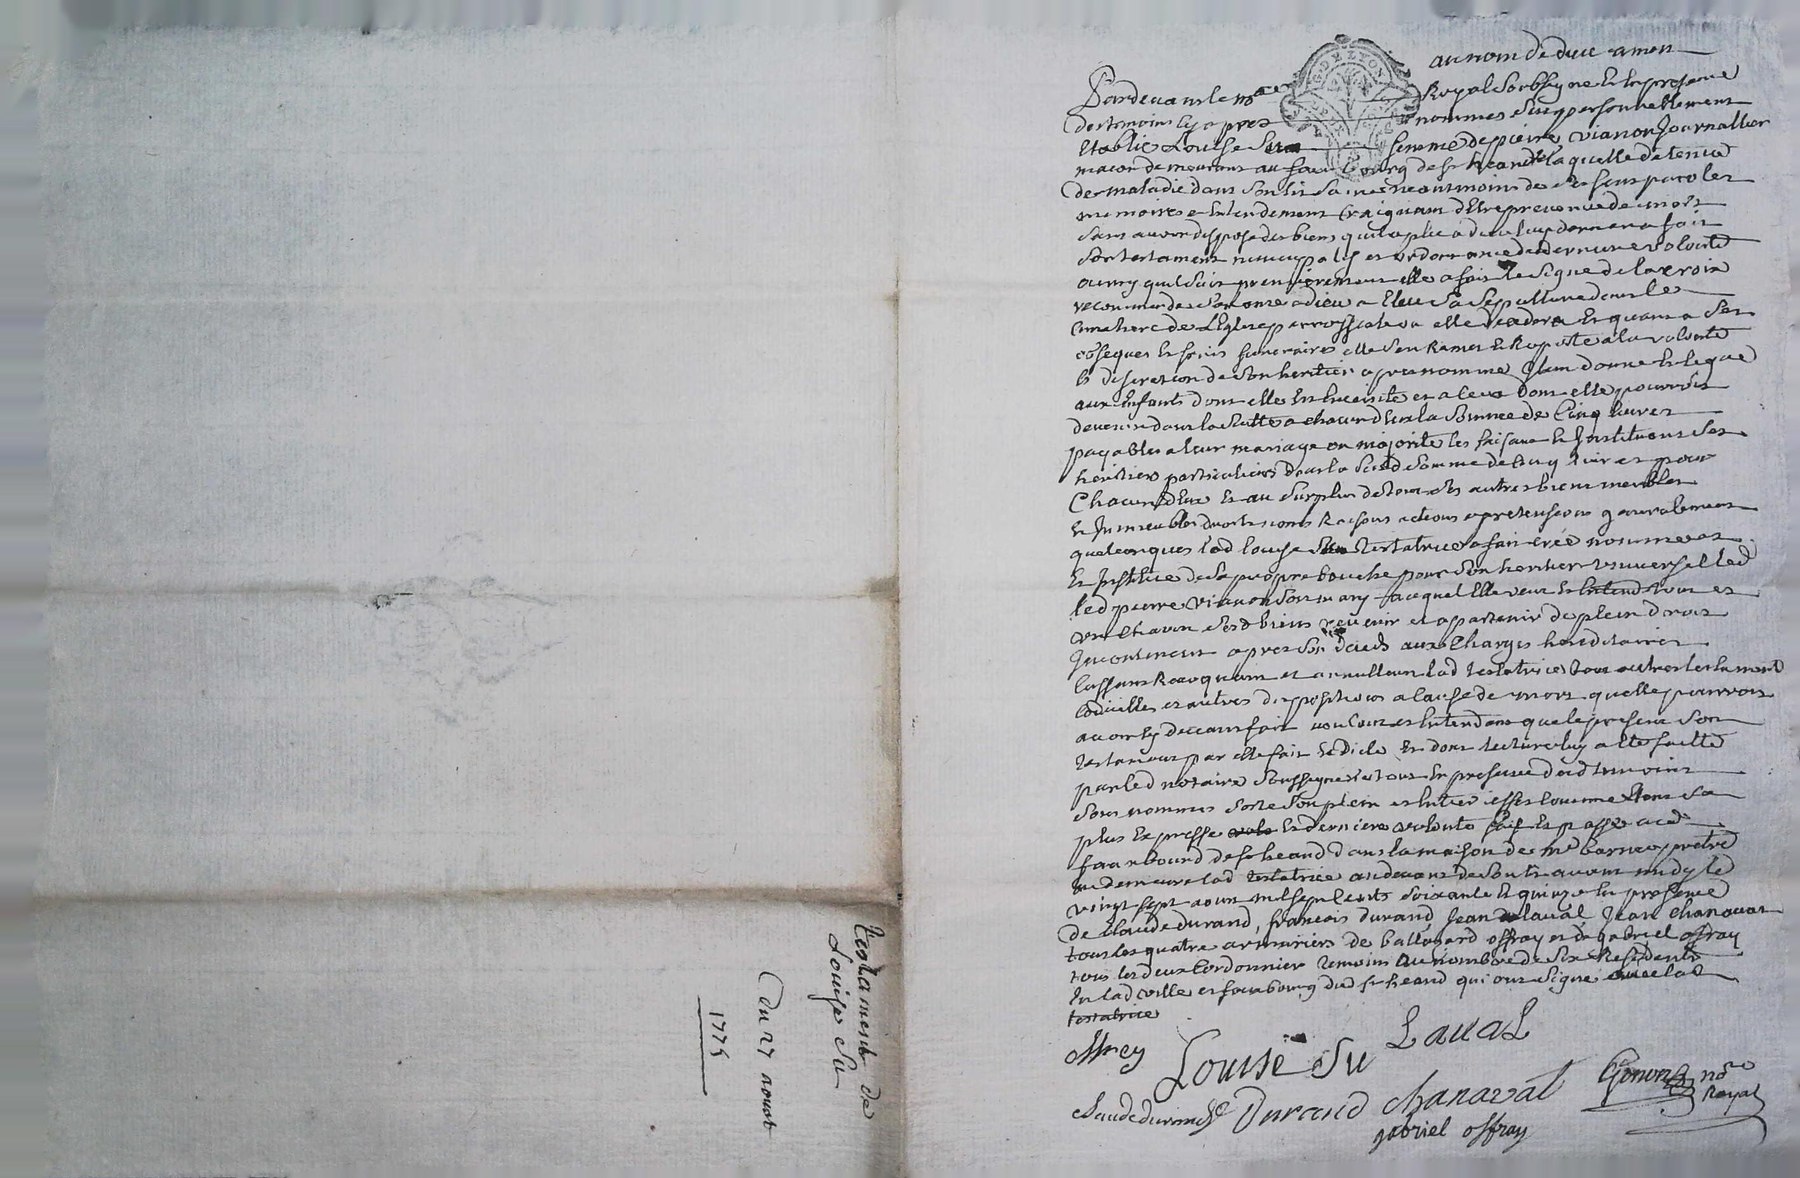 au nom de dieu amen
Pardevant le no^re Royal soubsigne Et En presence
des temoins cy apres nommes fut personnellement
Etablie Louise Su femme de pierre vianon Journallier
macon demeurant au faux bourg de s^t heand laquelle detenue
de maladie dans son lit saine neantmoins de ses sens parolles
memoires et Entendement Craignant d'Etre prevenue de mort
sans avoir dispose des biens quil a plu a dieu luy donner a fait
son testament nuncupatif et ordonnance de derniere volonte
comme
recommande son ame a dieu a Eleu sa sepulture dans le
Cimetiere de L'Eglise parroissiale ou elle decedera Et quant a ses
obseques Et frais funeraires elle s'en Remet Et Raporte a la volonte
Et discretion de son heritier apres nomme Item donne Et legue
aux Enfants dont elle Est Enceinte et a ceux dont elle pourroit
devenir dans la suitte a chacun d'Eux la somme de Cinq livres
payables a leur mariage ou majorite les faisant Et Instituant ses
heritiers particuliers dans la susd somme de Cinq livres pour
Chacun d'Eux Et au surplus de tous ses autres biens meubles
Et Immeubles droits noms Raisons actions et pretensions generalement
quelconques lad louise Su testatrice a fait cree nomme et
Et Institue de sa propre bouche pour son heritier universel led
led pierre vianon son mary auquel Elle veut Et Entend tous et
un chacun ses d biens revenir et appartenir de plein droit
Incontinent apres son deceds aux Charges hereditaires
Cassant Revoquant et annullant lad testatrice tous autres testament
Codicilles et autres dispositions a Cause de mort quelle pourroit
avoir cy devant fait voulant et Entendant que le present son
testament par elle fait Et dicte Et dont lecture luy a ete faitte
par led notaire soussigne le tout En presence desd temoins
sous nommes sorte son plein et Entier effet comme Etant sa
plus Expresse vol Et derniere volonte fait Et passe aud
fauxbourd de s^t heand dans la maison de m^r barnier pretre
ou demeure lad testatrice au devant de son lit avant midy le
vingt sept aoust mil sept cents soixante Et quinze En presence
de Claude durand, francois durand Jean laval Jean Chanavat
tous les quatre armuriers de offray et de gabriel offray
tous les deux Cordonnier temoins au nombre de six Residents
En lad ville et fauxbourg dud s^t heand qui ont signe avec lad
testatrice
offrey Louise Su Laval
claude durand Durand chanavat Gonon no^re Royal
gabriel offray
testament de
Louise Su
Du 27 aoust
1775